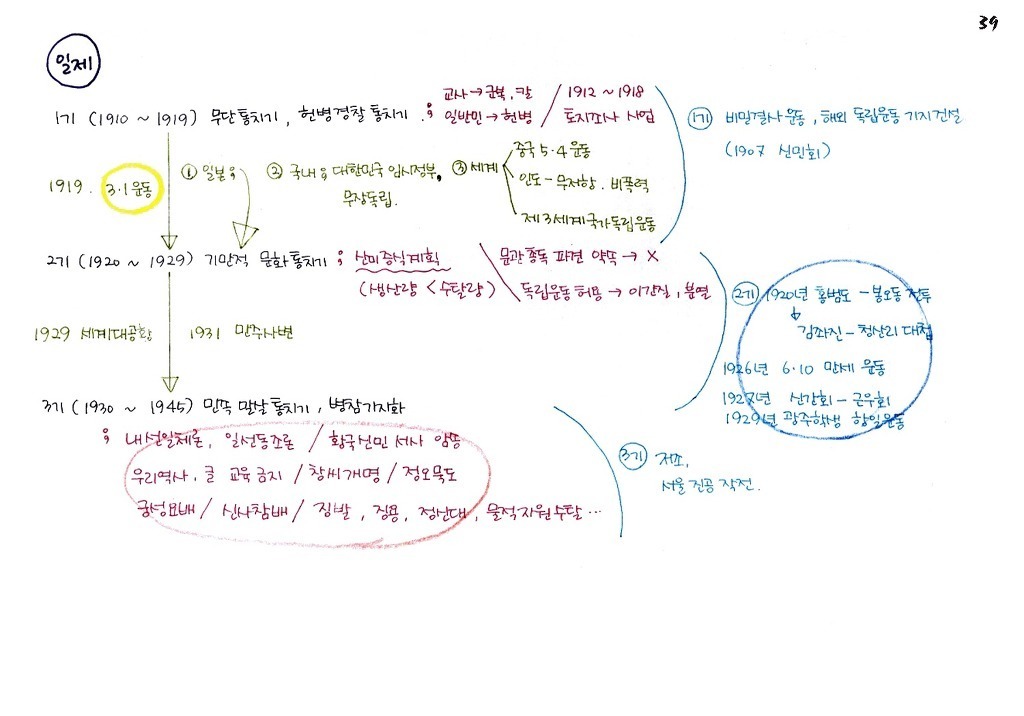 39
일제
교사 → 군복, 칼 / 1912 ~ 1918
1기 (1910 ~ 1919) 무단통치기, 헌병경찰통치기 ; 일반인 → 헌병 / 토지조사 사업
1919. 3·1운동
① 일본 ;
② 국내 ; 대한민국 임시정부,
무장독립.
③ 세계
중국 5·4 운동
인도 - 무저항. 비폭력
제3세계국가독립운동
2기 (1920 ~ 1929) 기만적 문화통치기 ; 산미증식계획
(생산량 < 수탈량)
문관총독 파견 약속 → X
독립운동허용 → 이간질, 분열
1929 세계대공황
1931 만주사변
3기 (1930 ~ 1945) 민족말살통치기, 병참기지화
; 내선일체론, 일선동조론 / 황국신민 서사 암송
우리역사, 글 교육 금지 / 창씨개명 / 정오묵도
궁성요배 / 신사참배 / 징발, 징용, 정신대, 물적자원수탈 …
1기 비밀결사운동, 해외 독립운동 기지건설
(1907 신민회)
2기 1920년 홍범도 - 봉오동 전투
김좌진 - 청산리 대첩
1926년 6·10 만세 운동
1927년 신간회 - 근우회
1929년 광주학생 항일운동
3기 저조.
서울 진공 작전.